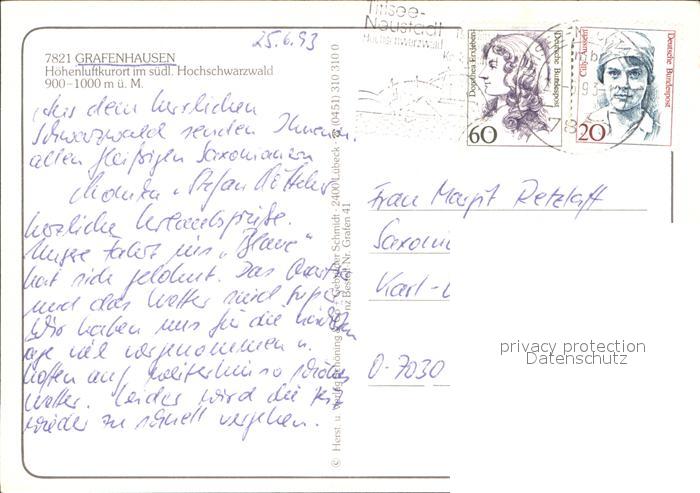 25.6.93
7821 GRAFENHAUSEN
Höhenluftkurort im südl. Hochschwarzwald
900–1000 m ü. M.
Aus dem herrlichen
Schwarzwald senden Ihnen u.
allen fleißigen Saxonianern
Monika u. Stefan
herzliche Urlaubsgrüße.
Unsere Fahrt ins „Blaue"
hat sich gelohnt. Das Quartier
und das Wetter sind super.
Wir haben uns für die nächsten
age viel vorgenommen u.
hoffen auf weiterhin so schönes
Wetter. Leider wird die
wieder zu schnell vergehen.
© Herst. u. Verlag Schöning & Co + Gebrüder Schmidt · 2400 Lübeck (0451) 310 310 0
nz Bestell-Nr. Grafen 41
Titisee-
Neustadt
Hochschwarzwald
Dorothea Erxleben
Deutsche Bundespost
60
Cilly Aussem
Deutsche Bundespost
20
Frau Margit Retzlaff
Saxoni
Karl-
O-7030
privacy protection
Datenschutz